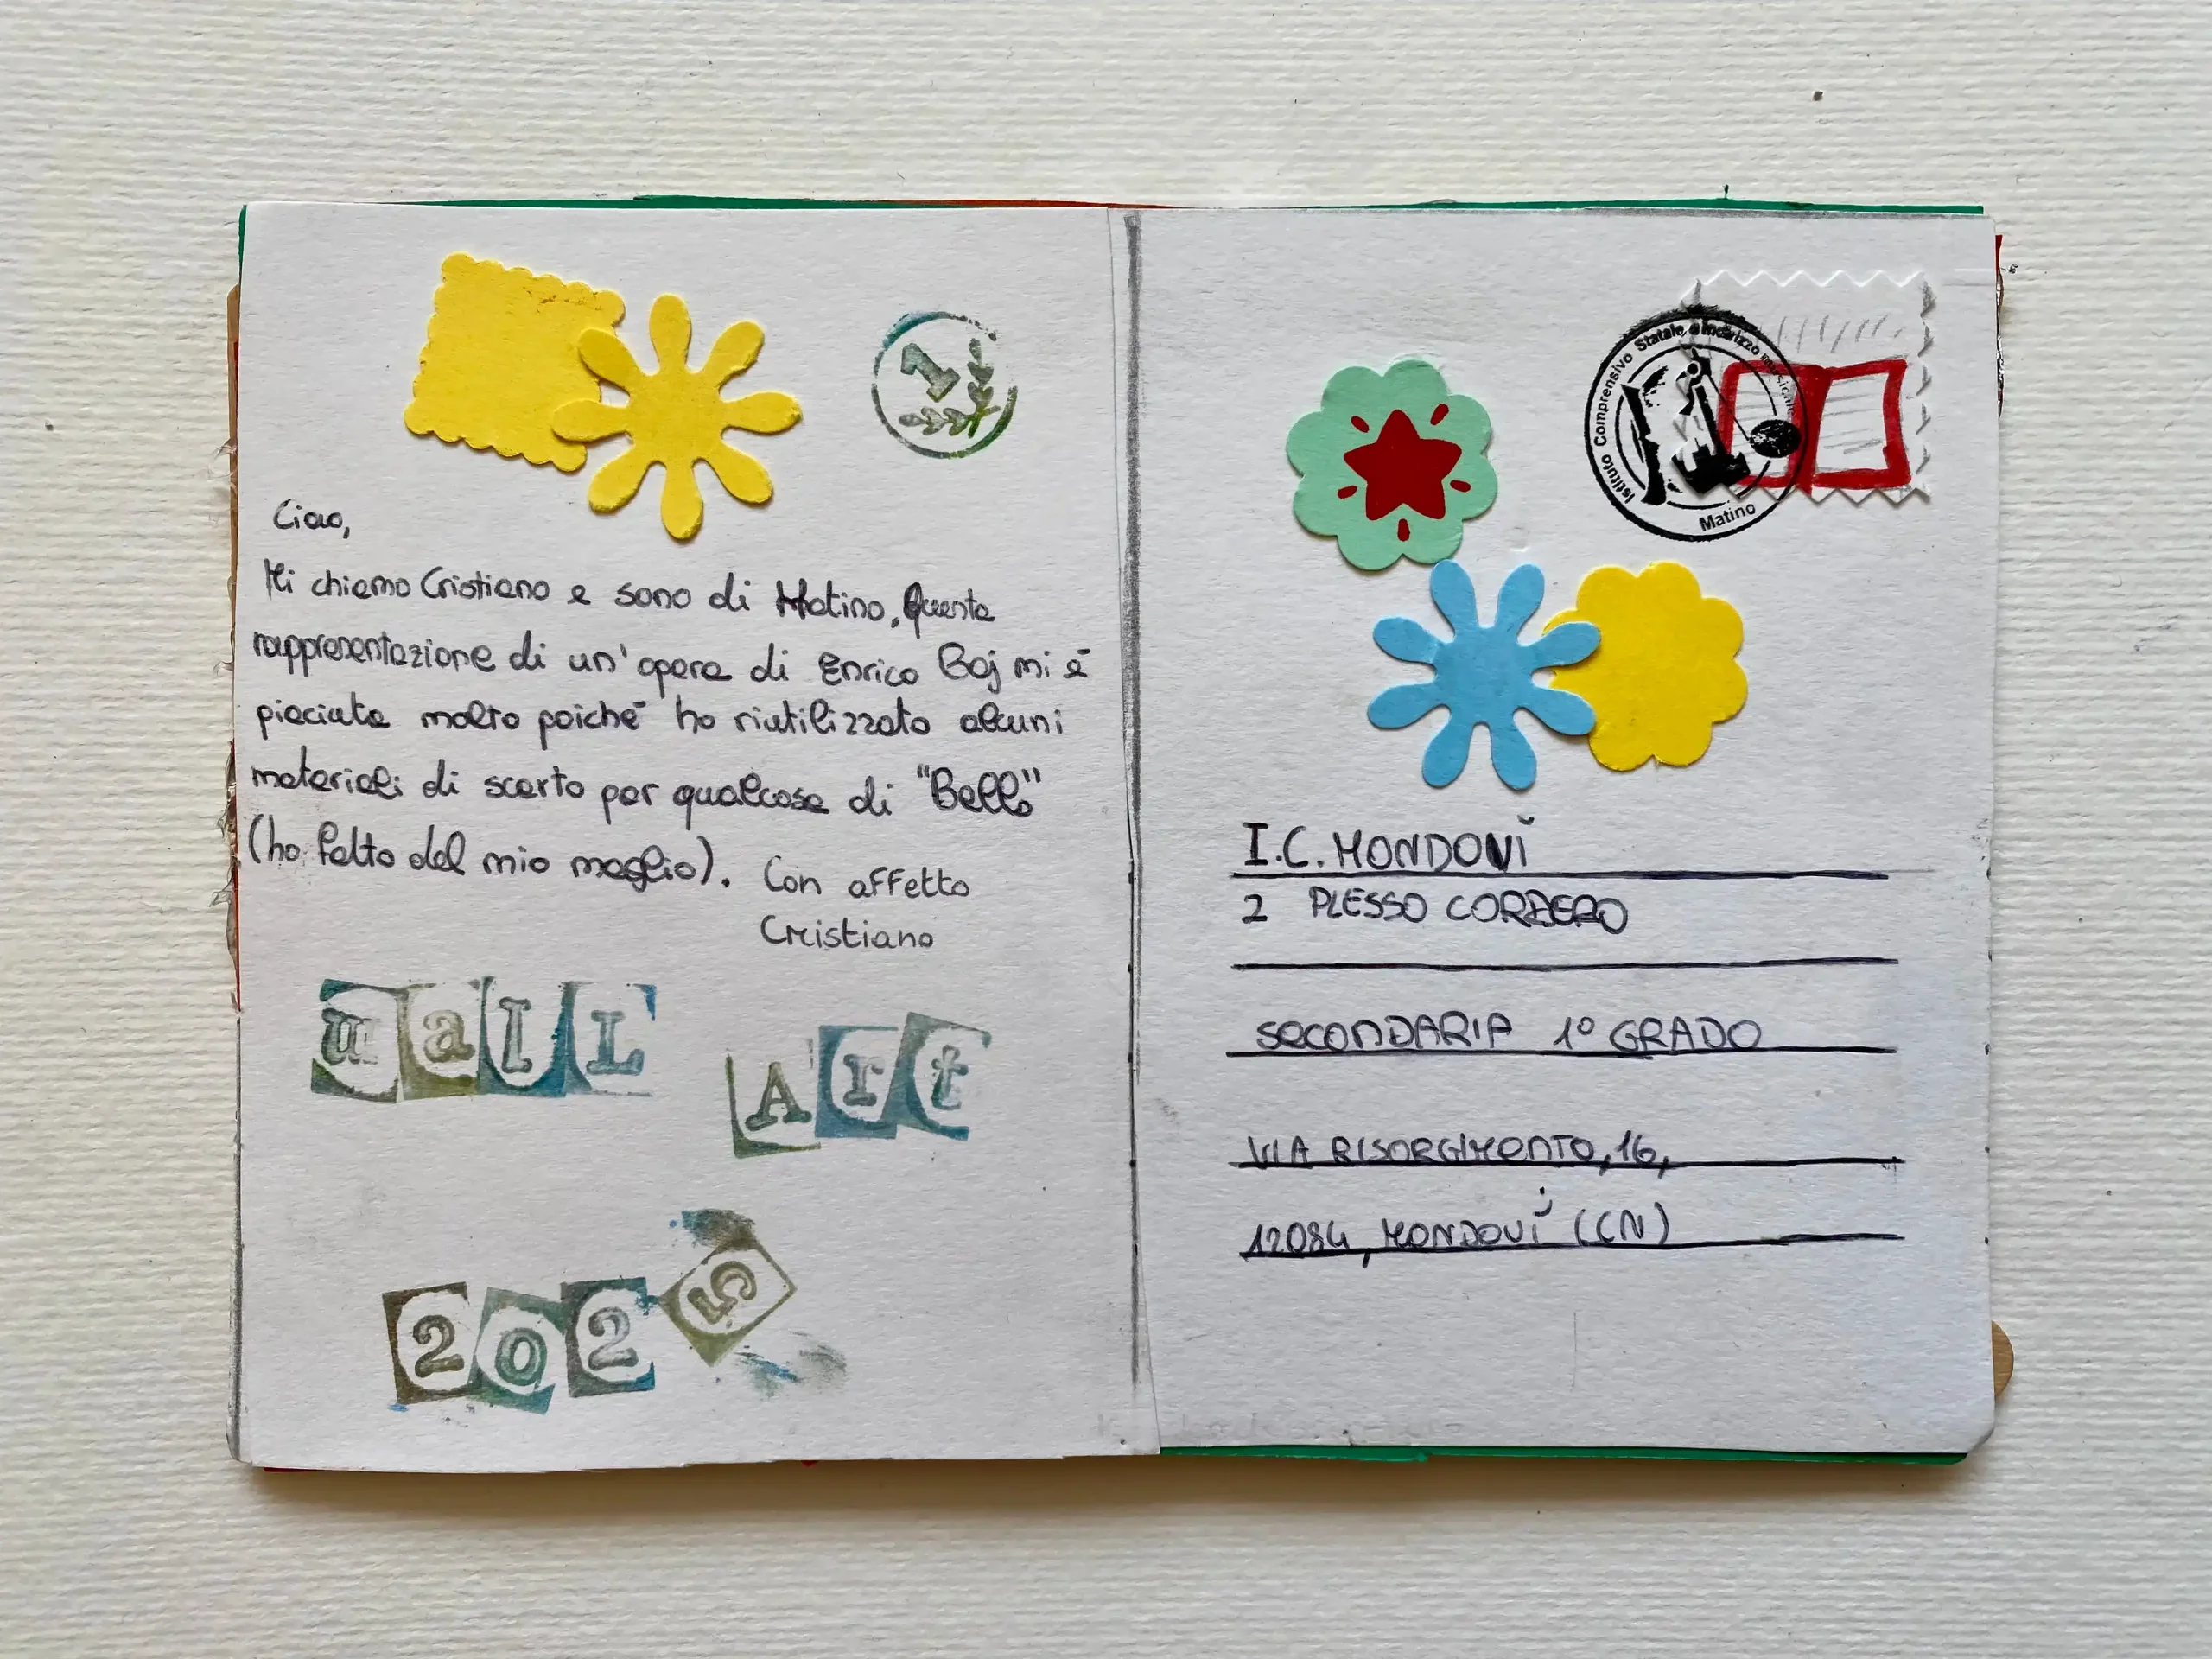 1
Ciao,
Mi chiamo Cristiano e sono di Matino, Questa
rappresentazione di un'opera di Enrico Baj mi è
piaciuta molto poiché ho riutilizzato alcuni
materiali di scarto per qualcosa di "Bello"
(ho fatto del mio meglio). Con affetto
Cristiano
maIL
Art
2025
Istituto Comprensivo Statale a Indirizzo musicale
Matino
I.C. MONDOVÌ
2 PLESSO CORDERO
SECONDARIA 1° GRADO
VIA RISORGIMENTO, 16,
12084, MONDOVÌ (CN)